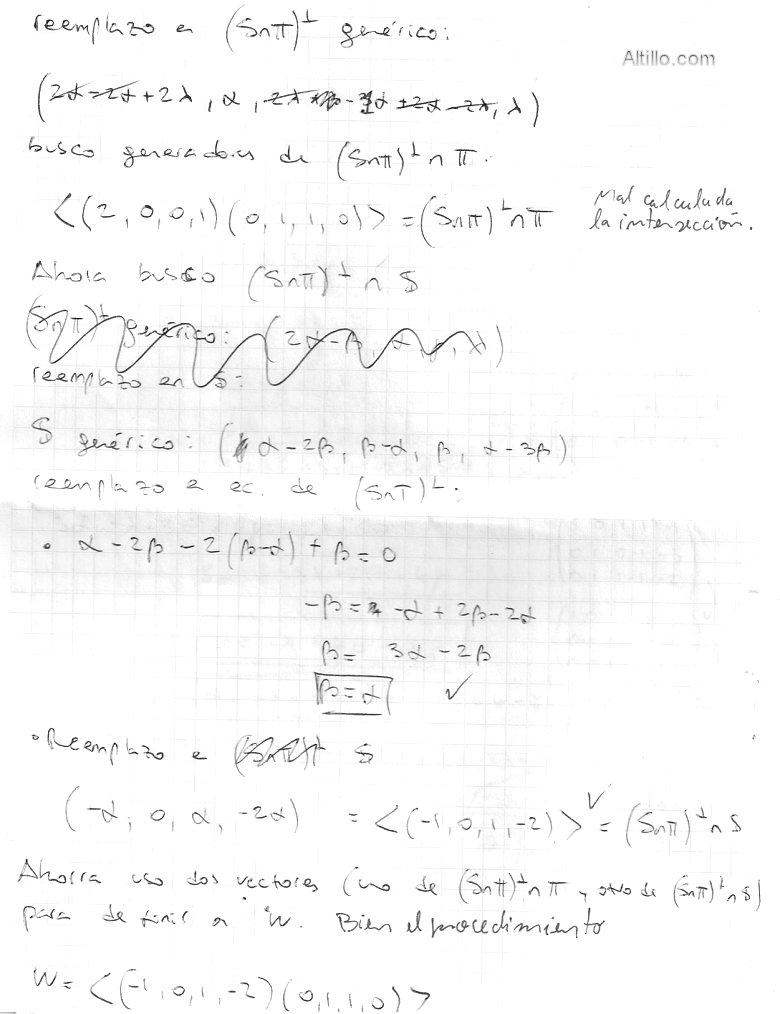 reemplazo en (S∩π)⊥ genérico:
Altillo.com
(2α-2α+2λ, α, , λ)
busco generadores de (S∩π)⊥ ∩ π.
<(2,0,0,1)(0,1,1,0)> = (S∩π)⊥∩π
Mal calculada
la intersección.
Ahora busco (S∩π)⊥ ∩ S
(S∩π)⊥ genérico: (2α-β, α, β, λ)
reemplazo en S:
S genérico: (α-2β, β-α, β, α-3β)
reemplazo e ec. de (S∩T)⊥:
• α-2β-2(β-α)+β=0
-β = -α+2β-2α
β = 3α-2β
β=α ✓
• Reemplazo e S
(-α, 0, α, -2α) = <(-1,0,1,-2)> ✓ = (S∩π)⊥∩S
Ahora uso dos vectores (uno de (S∩π)⊥∩π y otro de (S∩π)⊥∩S)
para definir a W. Bien el procedimiento
W = <(-1,0,1,-2)(0,1,1,0)>